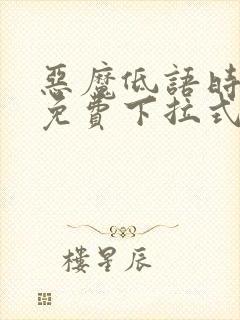 惡魔低語時
免費下拉式
樓星辰